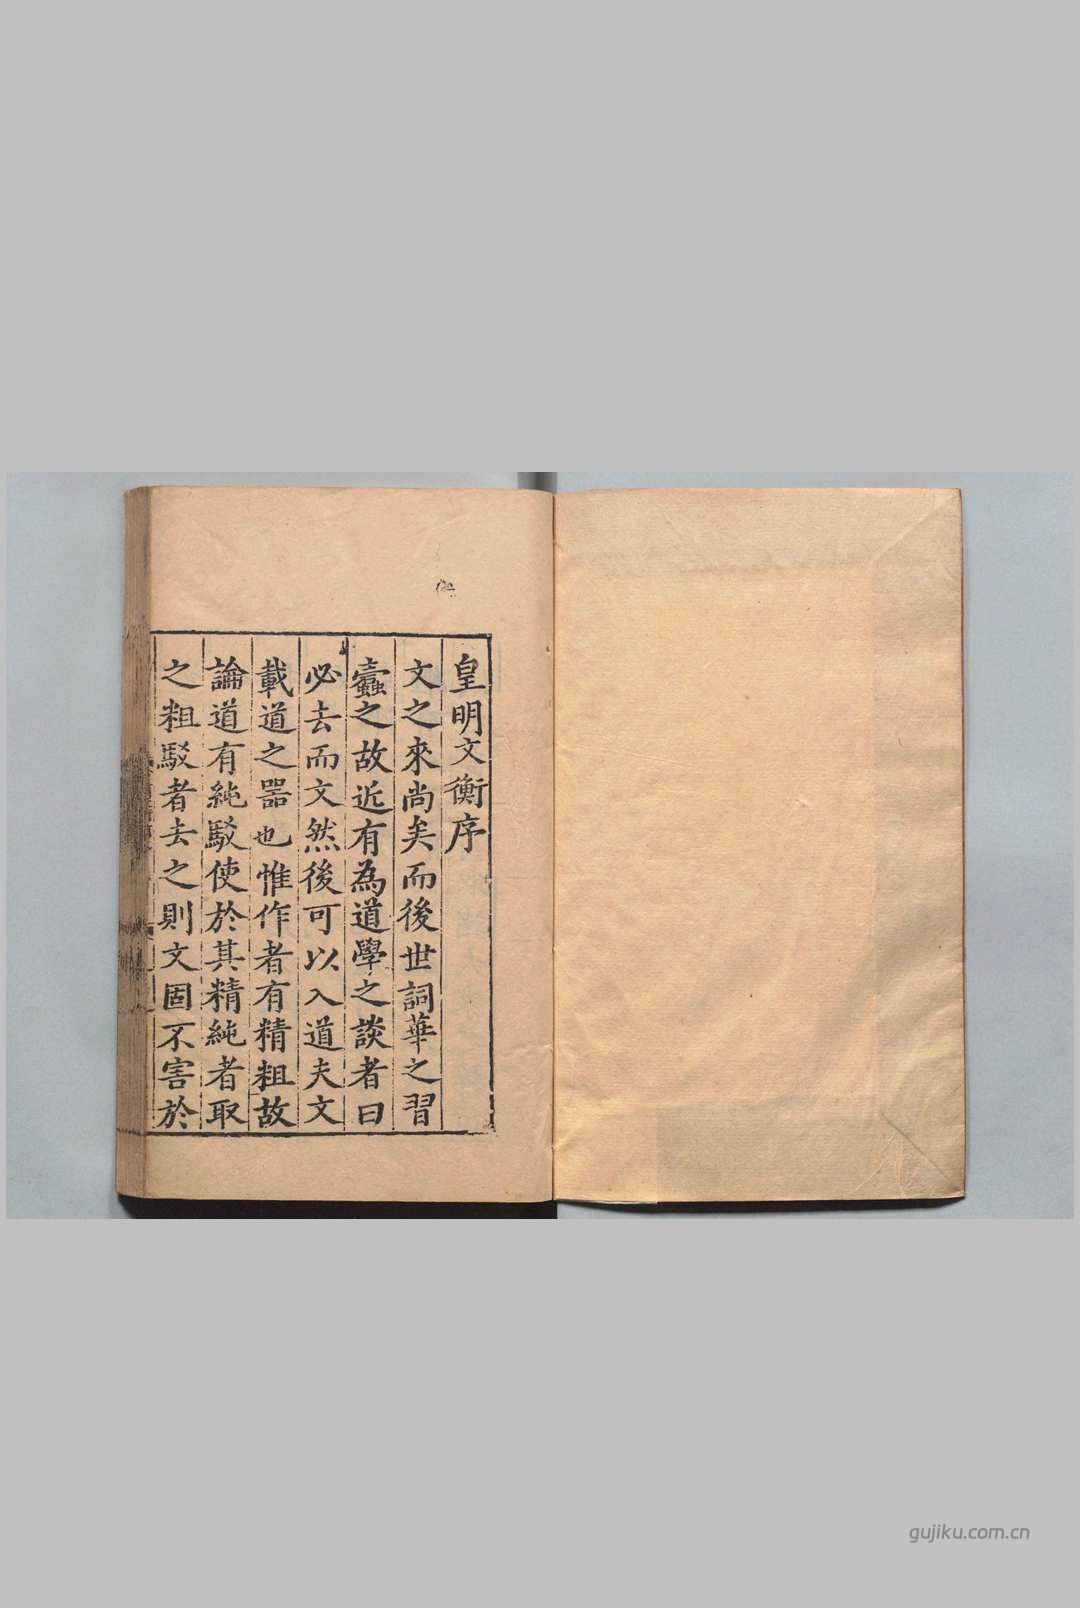 皇明文衡序
文之來尚矣而後世詞華之習
蠹之故近有為道學之談者曰
必去而文然後可以入道夫文
載道之器也惟作者有精粗故
論道有純駁使於其精純者取
之粗駁者去之則文固不害於
gujiku.com.cn